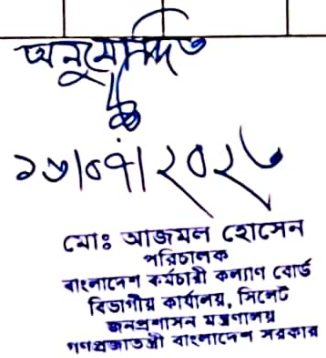 অনুমোদিত
১৬/০৭/২০২৬
মোঃ আজমল হোসেন
পরিচালক
বাংলাদেশ কর্মচারী কল্যাণ বোর্ড
বিভাগীয় কার্যালয়, সিলেট
জনপ্রশাসন মন্ত্রণালয়
গণপ্রজাতন্ত্রী বাংলাদেশ সরকার